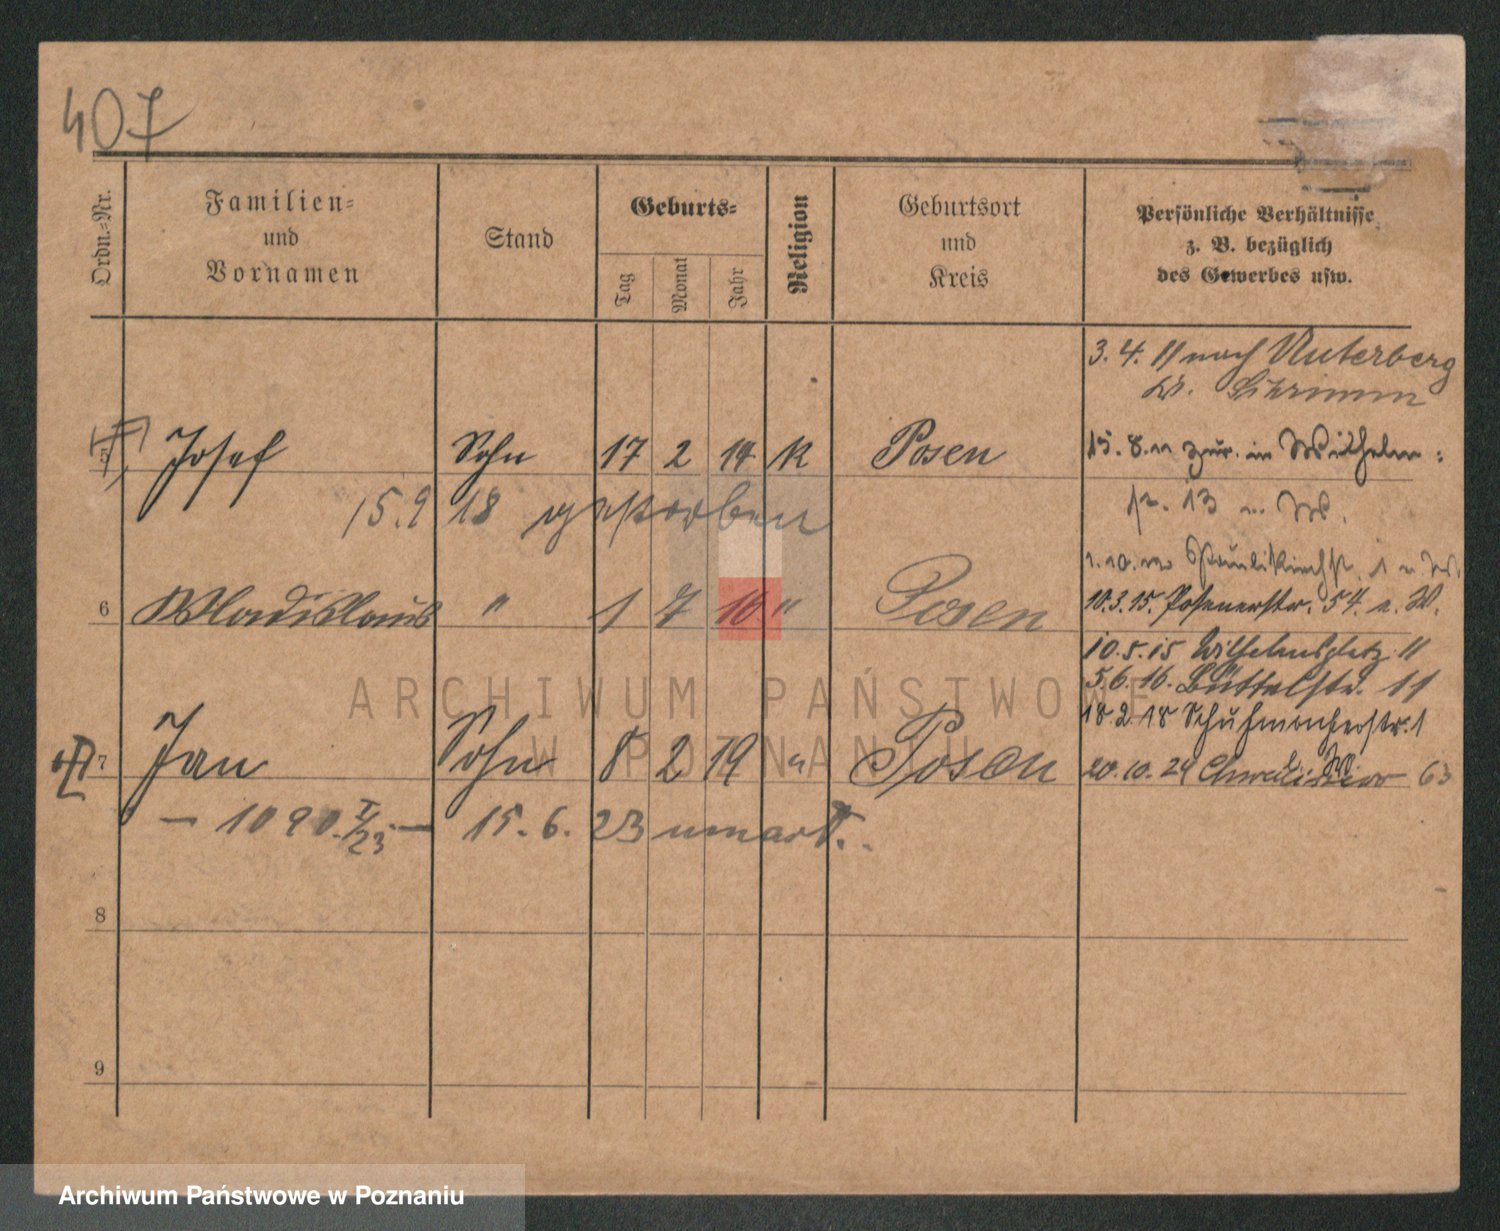 407
Ordn.=Nr.
Familien=
und
Vornamen
Stand
Geburts=
Tag
Monat
Jahr
Religion
Geburtsort
und
Kreis
Persönliche Verhältnisse
z. B. bezüglich
des Gewerbes usw.
3. 4. 11 nach Unterberg
Kr. Schrimm
5 Josef Sohn 17 2 14 k Posen
15.9 18 gestorben
15. 8. 11 zur. in Wilhelm=
str. 13 v. W.
6 Wladislaus " 1 7 16 " Posen
1. 10. Paulikirchstr. 1 v. W.
10. 3. 15. Posenerstr. 54. v. W.
10. 5. 15 Wilhelmsplatz 11
5. 6. 16. Büttelstr. 11
18. 2. 18 Schuhmacherstr. 1
7 Jan Sohn 8 2 19 " Posen
20. 10. 24 63
— 1090. I/23. — 15. 6. 23 umart.
8
9
ARCHIWUM PAŃSTWOWE
W POZNANIU
Archiwum Państwowe w Poznaniu